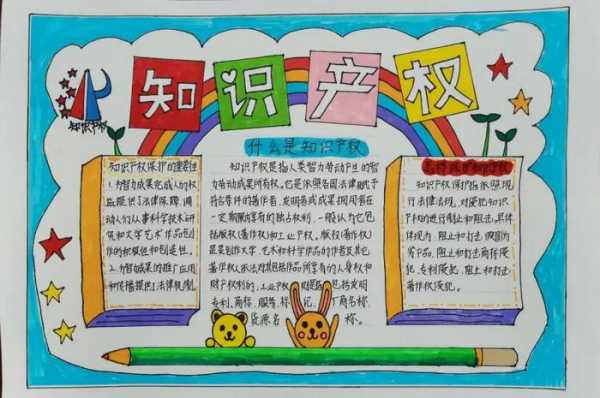 知识产权
知识产权
知识产权保护的重要性
1.为智力成果完成人的权
益提供了法律保障,调
动人们从事科学技术研
究和文学艺术作品创
作的积极性和创造性。
2.为智力成果的推广应用
和传播提供了法律机制,
什么是知识产权
知识产权是指人类智力劳动产生的智
力劳动成果所有权。它是依照各国法律赋予
符合条件的著作者、发明者或成果拥有者在
一定期限内享有的独占权利,一般认为它包
括版权(著作权)和工业产权。版权(著作权)
是指创作文学、艺术和科学作品的作者及其他
著作权人依法对其作品所享有的人身权和
财产权利的,工业产权 包括发明
专利、商标、服务标记、厂商名称、
货源名称。
知识产权
知识产权保护指依照现
行法律法规,对侵犯知识
产权的进行制止和阻止。具体
体现为:阻止和打击假冒伪
劣产品,阻止和打击商标侵
犯、专利侵犯,阻止和打击
著作权侵犯。